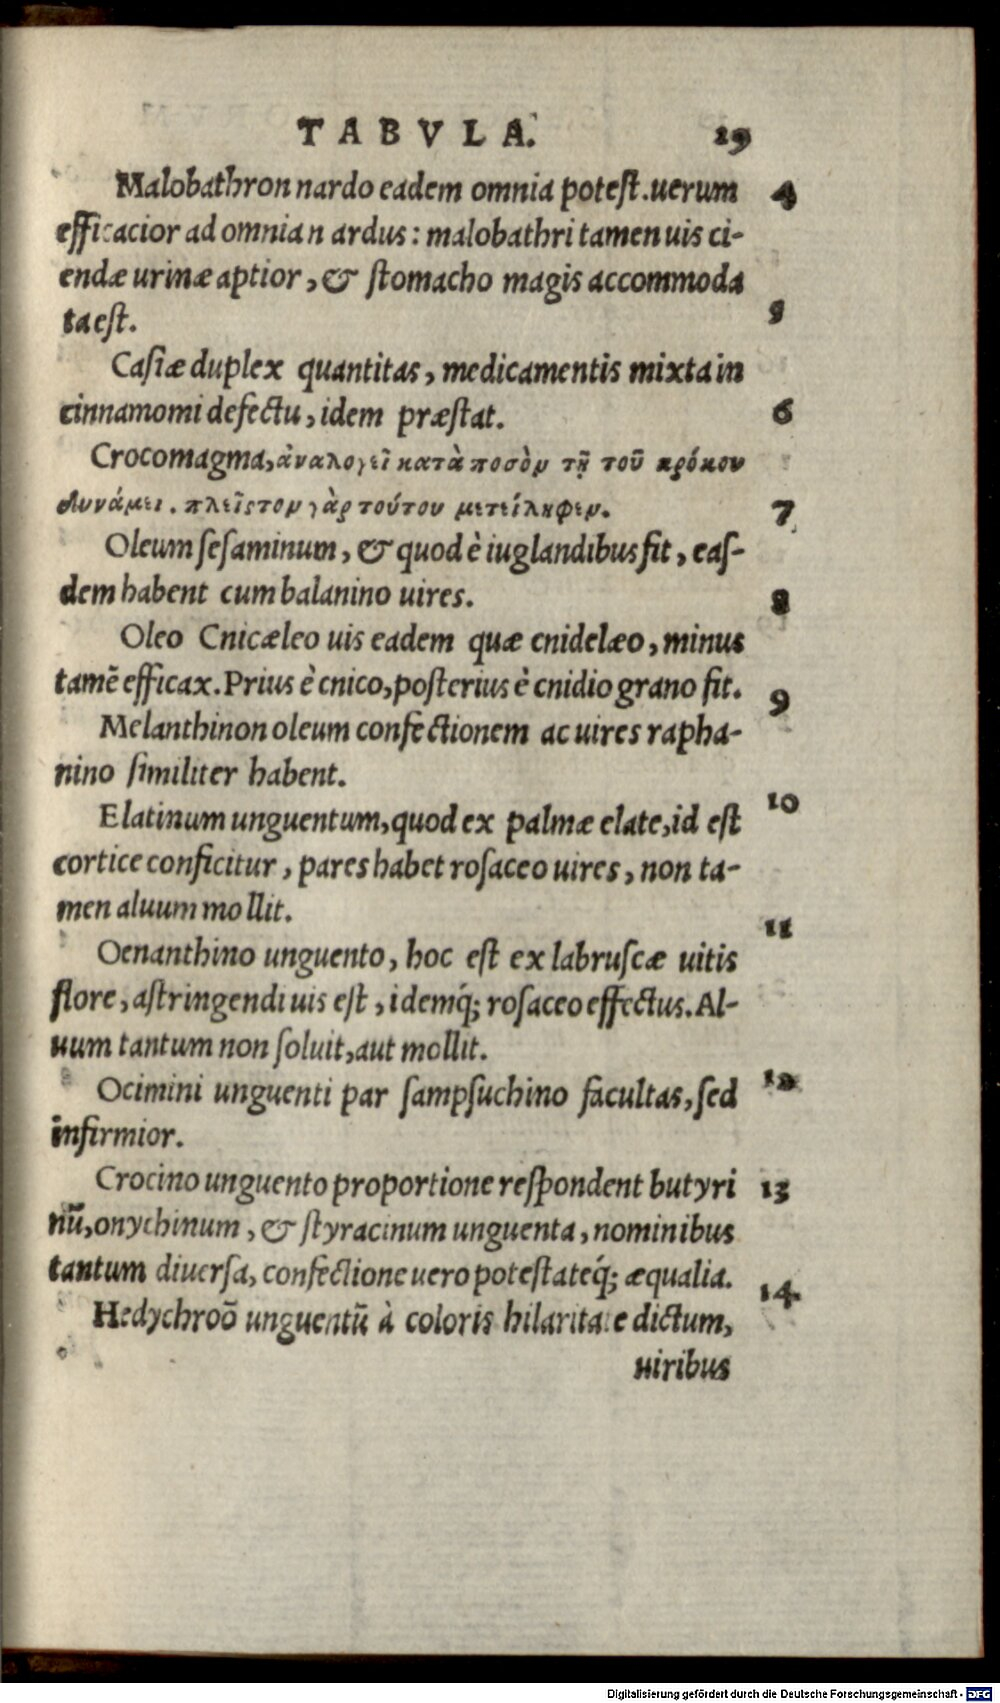 TABVLA. 19
Malobathron nardo eadem omnia potest. uerum 4
efficacior ad omnia n ardus: malobathri tamen uis ci-
endæ urinæ aptior, & stomacho magis accommoda
ta est. 5
Casiæ duplex quantitas, medicamentis mixta in
cinnamomi defectu, idem præstat. 6
Crocomagma, ἀναλογεῖ κατὰ ποσὸν τῇ τοῦ κρόκου
δυνάμει. πλεῖστον γὰρ τούτου μετείληφεν. 7
Oleum sesaminum, & quod è iuglandibus fit, eas-
dem habent cum balanino uires. 8
Oleo Cnicæleo uis eadem quæ cnidelæo, minus
tamē efficax. Prius è cnico, posterius è cnidio grano fit. 9
Melanthinon oleum confectionem ac uires rapha-
nino similiter habent.
Elatinum unguentum, quod ex palmæ elate, id est 10
cortice conficitur, pares habet rosaceo uires, non ta-
men aluum mollit. 11
Oenanthino unguento, hoc est ex labruscæ uitis
flore, astringendi uis est, idemq́; rosaceo effectus. Al-
uum tantum non soluit, aut mollit.
Ocimini unguenti par sampsuchino facultas, sed 12
infirmior.
Crocino unguento proportione respondent butyri 13
nū, onychinum, & styracinum unguenta, nominibus
tantum diuersa, confectione uero potestateq́; æqualia. 14
Hedychroō unguentū à coloris hilaritate dictum,
uiribus
Digitalisierung gefördert durch die Deutsche Forschungsgemeinschaft - DFG